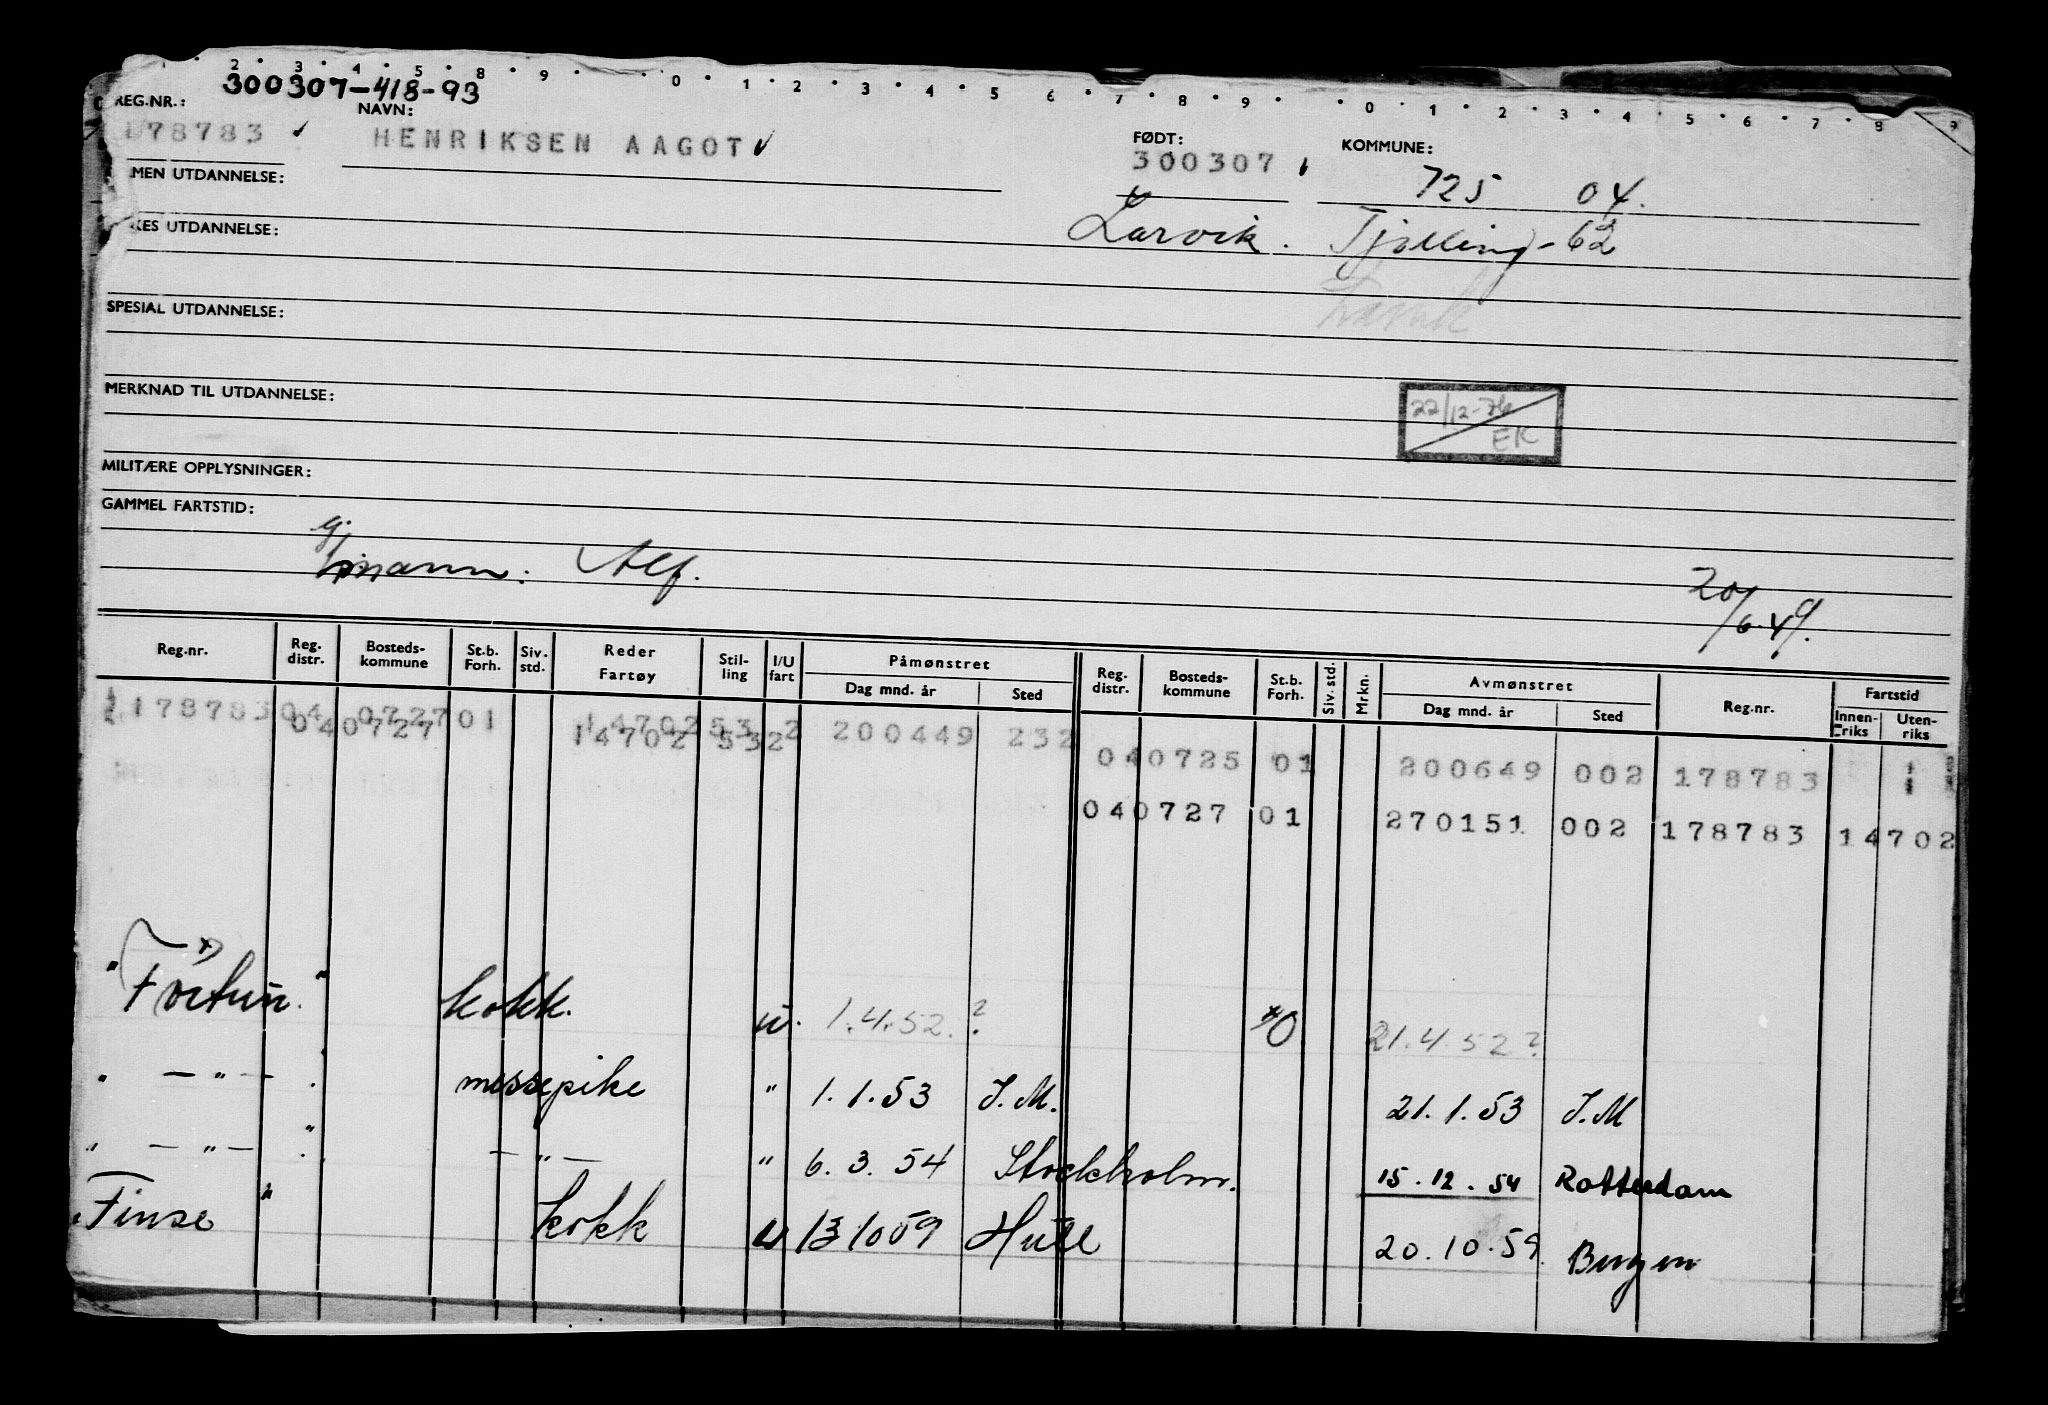 2 3 4 5 8 9 0 1 2 3 4 5 6 7 8 9 0 1 2 3 4 5 6 7 8 9
300307-418-93
REG.NR.: NAVN: FØDT: KOMMUNE:
178783 ✓ HENRIKSEN AAGOT ✓ 300307
725 04.
MEN UTDANNELSE:
Larvik. Tjølling - 62
KES UTDANNELSE:
Larvik
SPESIAL UTDANNELSE:
MERKNAD TIL UTDANNELSE:
22/12-76
EK
MILITÆRE OPPLYSNINGER:
GAMMEL FARTSTID:
Alf.
20/6.49.
Reg.nr. Reg. distr. Bosteds-kommune St.b. Forh. Siv. std. Reder Fartøy Stil-ling I/U fart Påmønstret Dag mnd. år Sted Reg. distr. Bosteds-kommune St.b. Forh. Siv. std. Mrkn. Avmønstret Dag mnd. år Sted Reg.nr. Fartstid Innen-riks Uten-riks
178783 04 0727 01 14702 53 2 200449 232
040727 14702 532
040725 01 200649 002 178783
040727 01 270151 002 178783 14702
"Fortun." kokk. u. 1.4.52.? *0 21.4.52?
" — " — " messepike " 1.1.53 J.M. 21.1.53 J.M
" — " — " — " — " 6.3.54 Stockholm. 15.12.54 Rotterdam
"Finse" kokk u 131059 Hull 20.10.59 Bergen